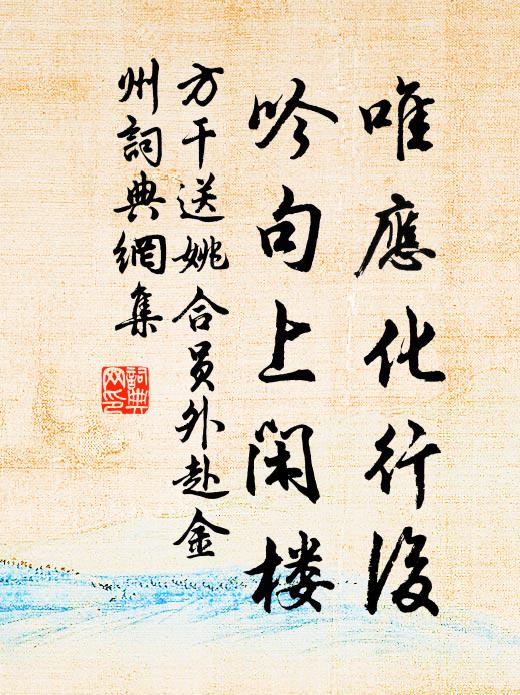 唯應化行後
吟句上閑楼
方干送姚合员外赴金
州詞典網集
詞典
网印